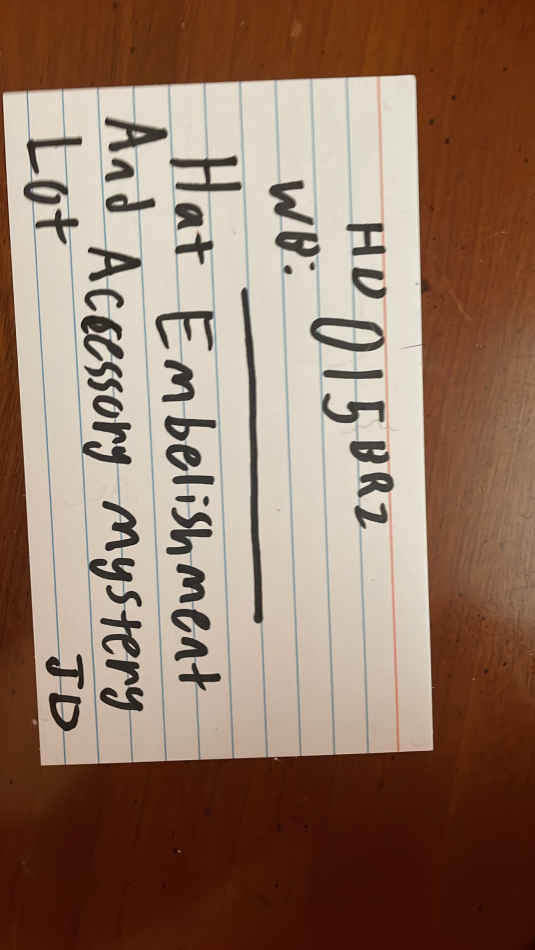 HD 015BRZ
WB:
Hat Embelishment
And Accessory mystery
Lot JD